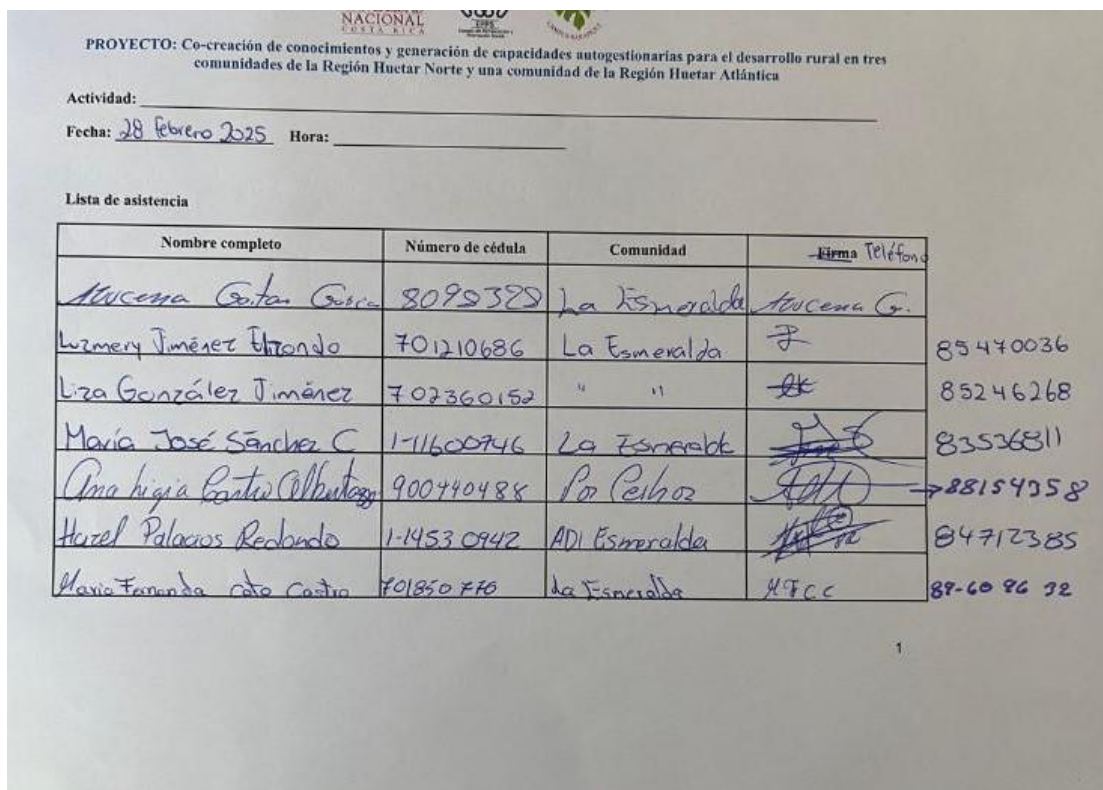 NACIONAL
COSTA RICA
PROYECTO: Co-creación de conocimientos y generación de capacidades autogestionarias para el desarrollo rural en tres
comunidades de la Región Huetar Norte y una comunidad de la Región Huetar Atlántica
Actividad:
Fecha: 28 febrero 2025 Hora:
Lista de asistencia
Nombre completo Número de cédula Comunidad Firma Teléfono
Gaitan La Esmeralda G.
Luzmery Jiménez Elizondo 701210686 La Esmeralda 85470036
Liza González Jiménez 702360152 " " 85246268
María José Sánchez C 1-11600746 La 83536811
Ana ligia Castro 88154358
Hazel Palacios Redondo 1-1453 0942 ADI Esmeralda 84712385
Maria Fernanda Coto Castro 701850770 La Esmeralda MFCC
1